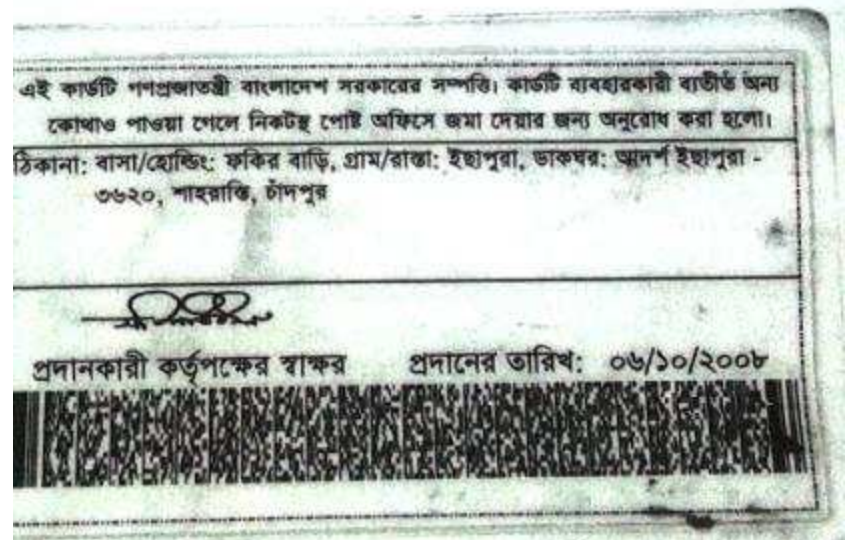 এই কার্ডটি গণপ্রজাতন্ত্রী বাংলাদেশ সরকারের সম্পত্তি। কার্ডটি ব্যবহারকারী ব্যতীত অন্য
কোথাও পাওয়া গেলে নিকটস্থ পোষ্ট অফিসে জমা দেয়ার জন্য অনুরোধ করা হলো।
ঠিকানা: বাসা/হোল্ডিং: ফকির বাড়ি, গ্রাম/রাস্তা: ইছাপুরা, ডাকঘর: আদর্শ ইছাপুরা -
৩৬২০, শাহরাস্তি, চাঁদপুর
প্রদানকারী কর্তৃপক্ষের স্বাক্ষর প্রদানের তারিখ: ০৬/১০/২০০৮